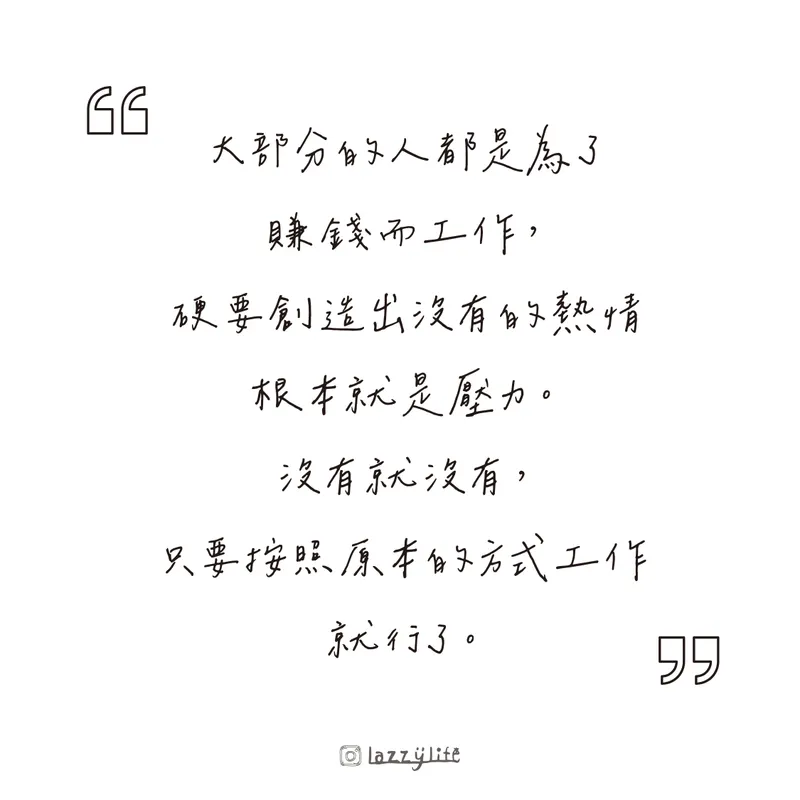 大部分的人都是為了
賺錢而工作，
硬要創造出沒有的熱情
根本就是壓力。
沒有就沒有，
只要按照原本的方式工作
就行了。
lazzylife